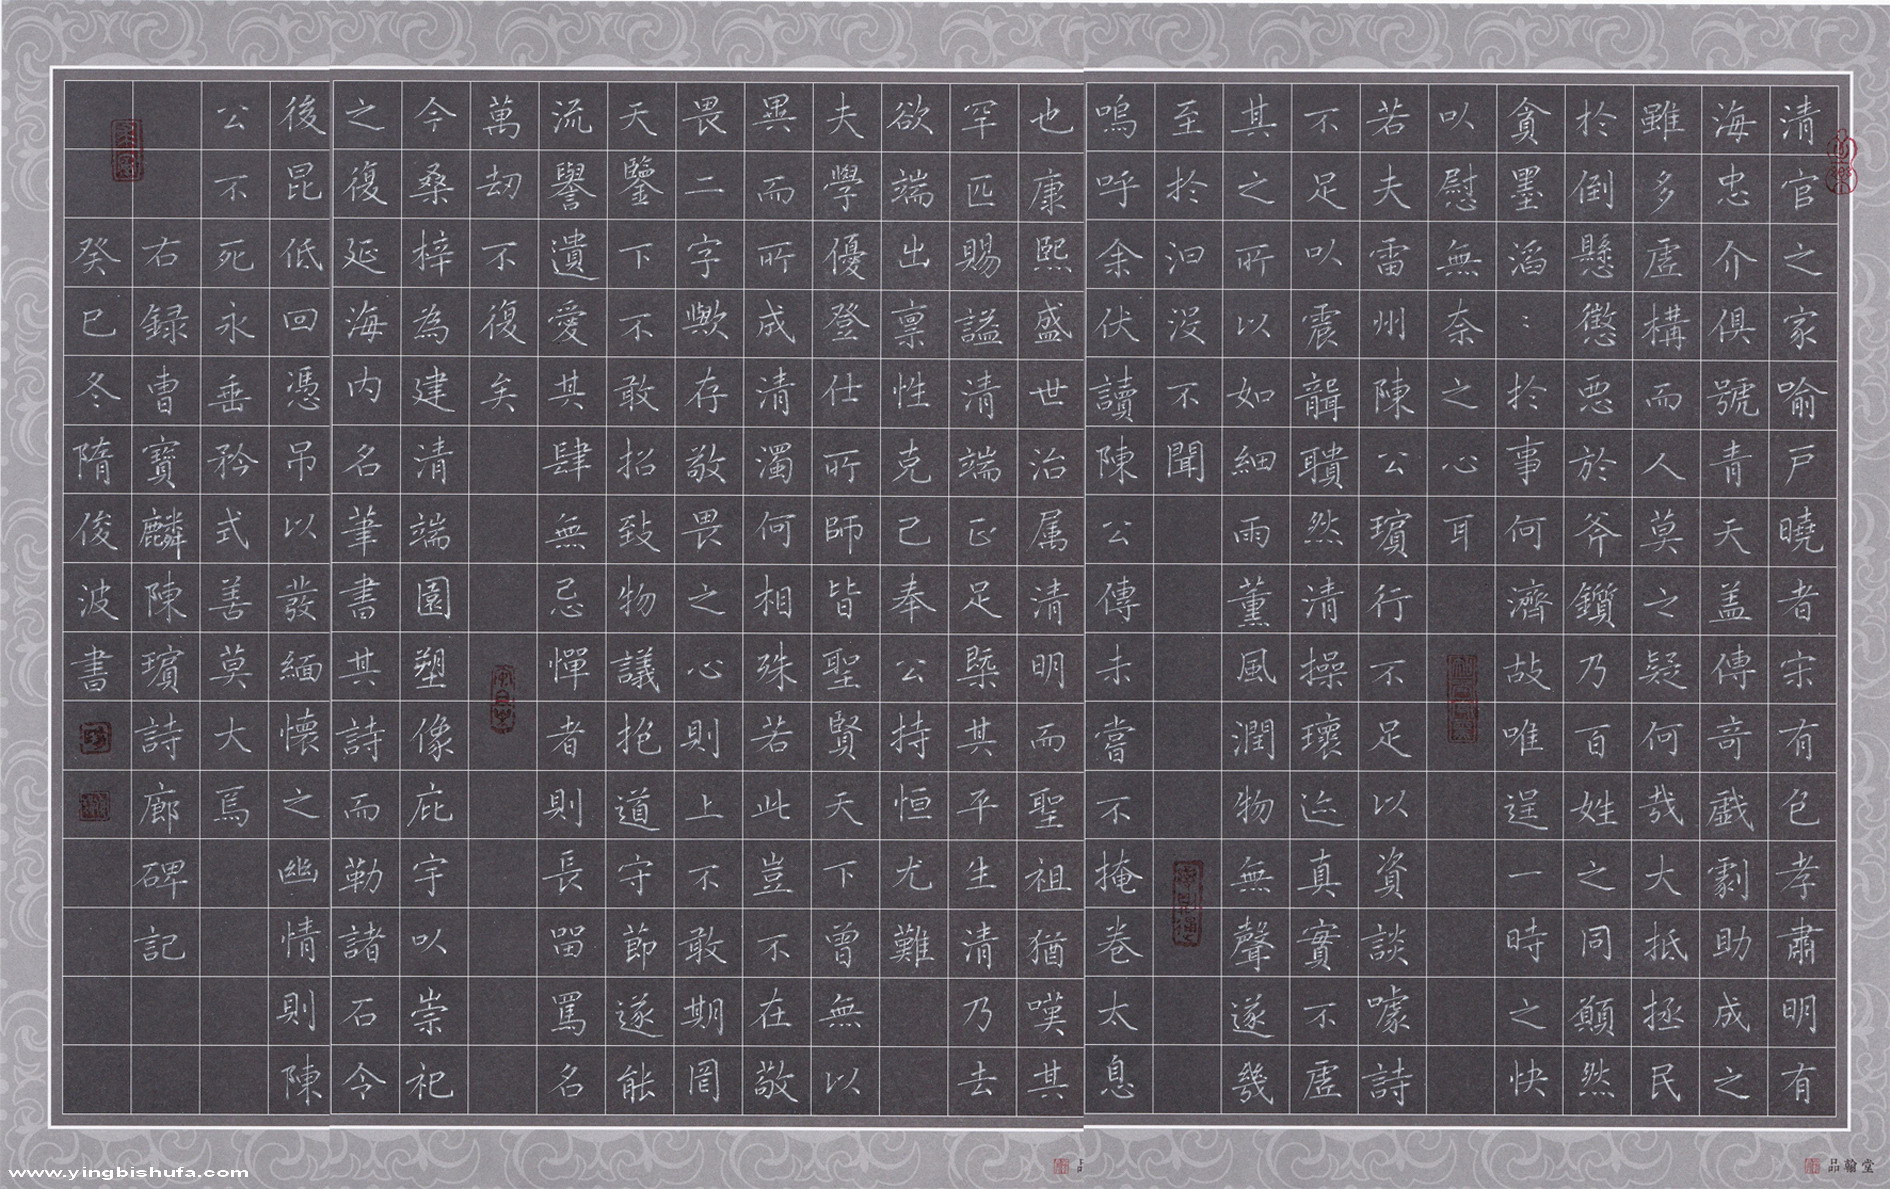 清官之家喻戶曉者宋有包孝肅明有
海忠介俱號青天盖傳奇戯劇助成之
雖多虛構而人莫之疑何哉大抵拯民
於倒懸懲惡於斧鑕乃百姓之同願然
貪墨滔〻於事何濟故唯逞一時之快
以慰無奈之心耳
若夫雷州陳公璸行不足以資談噱詩
不足以震聾聵然清操瓌迹真實不虛
其之所以如細雨薰風潤物無聲遂幾
至於汩没不聞
嗚呼余伏讀陳公傳未嘗不掩卷太息
也康熙盛世治属清明而聖祖猶嘆其
罕匹賜謚清端正足槩其平生清乃去
欲端出禀性克己奉公持恒尤難
夫學優登仕所師皆聖賢天下曾無以
異而所成清濁何相殊若此豈不在敬
畏二字歟存敬畏之心則上不敢期罔
天鑒下不敢招致物議抱道守節遂能
流譽遺愛其肆無忌憚者則長畱罵名
萬劫不復矣
今桑梓為建清端園塑像庇宇以崇祀
之復延海内名筆書其詩而勒諸石令
後昆低回憑吊以發緬懷之幽情則陳
公不死永垂矜式善莫大焉
右録曹寶麟陳璸詩廊碑記
癸巳冬隋俊波書
www.yingbishufa.com
品翰堂